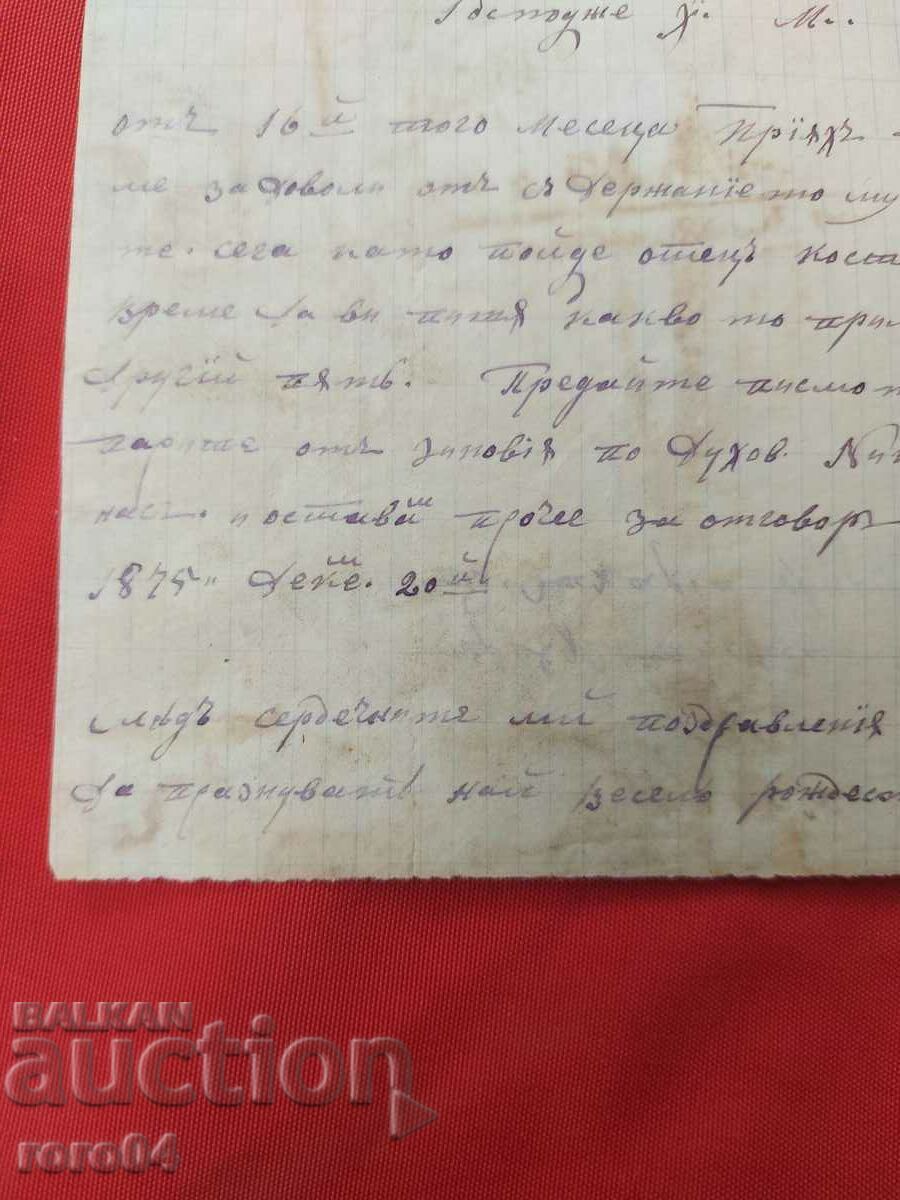 Господже Х. М..
отъ 16й того месеца Прïяхъ
ме задоволи отъ съдержанïето му
те. сега като пойде отецъ Кост
време да ви пишѫ какво то при
другïй пѫть. Предайте писмо
парите отъ по Духов.
насъ. поставаш прочее за отговоръ
1875" Деке. 20й
Слѣдъ сердечните ми поздравленïя
да празнувать най весело рождест
BALKAN
auction
roro04